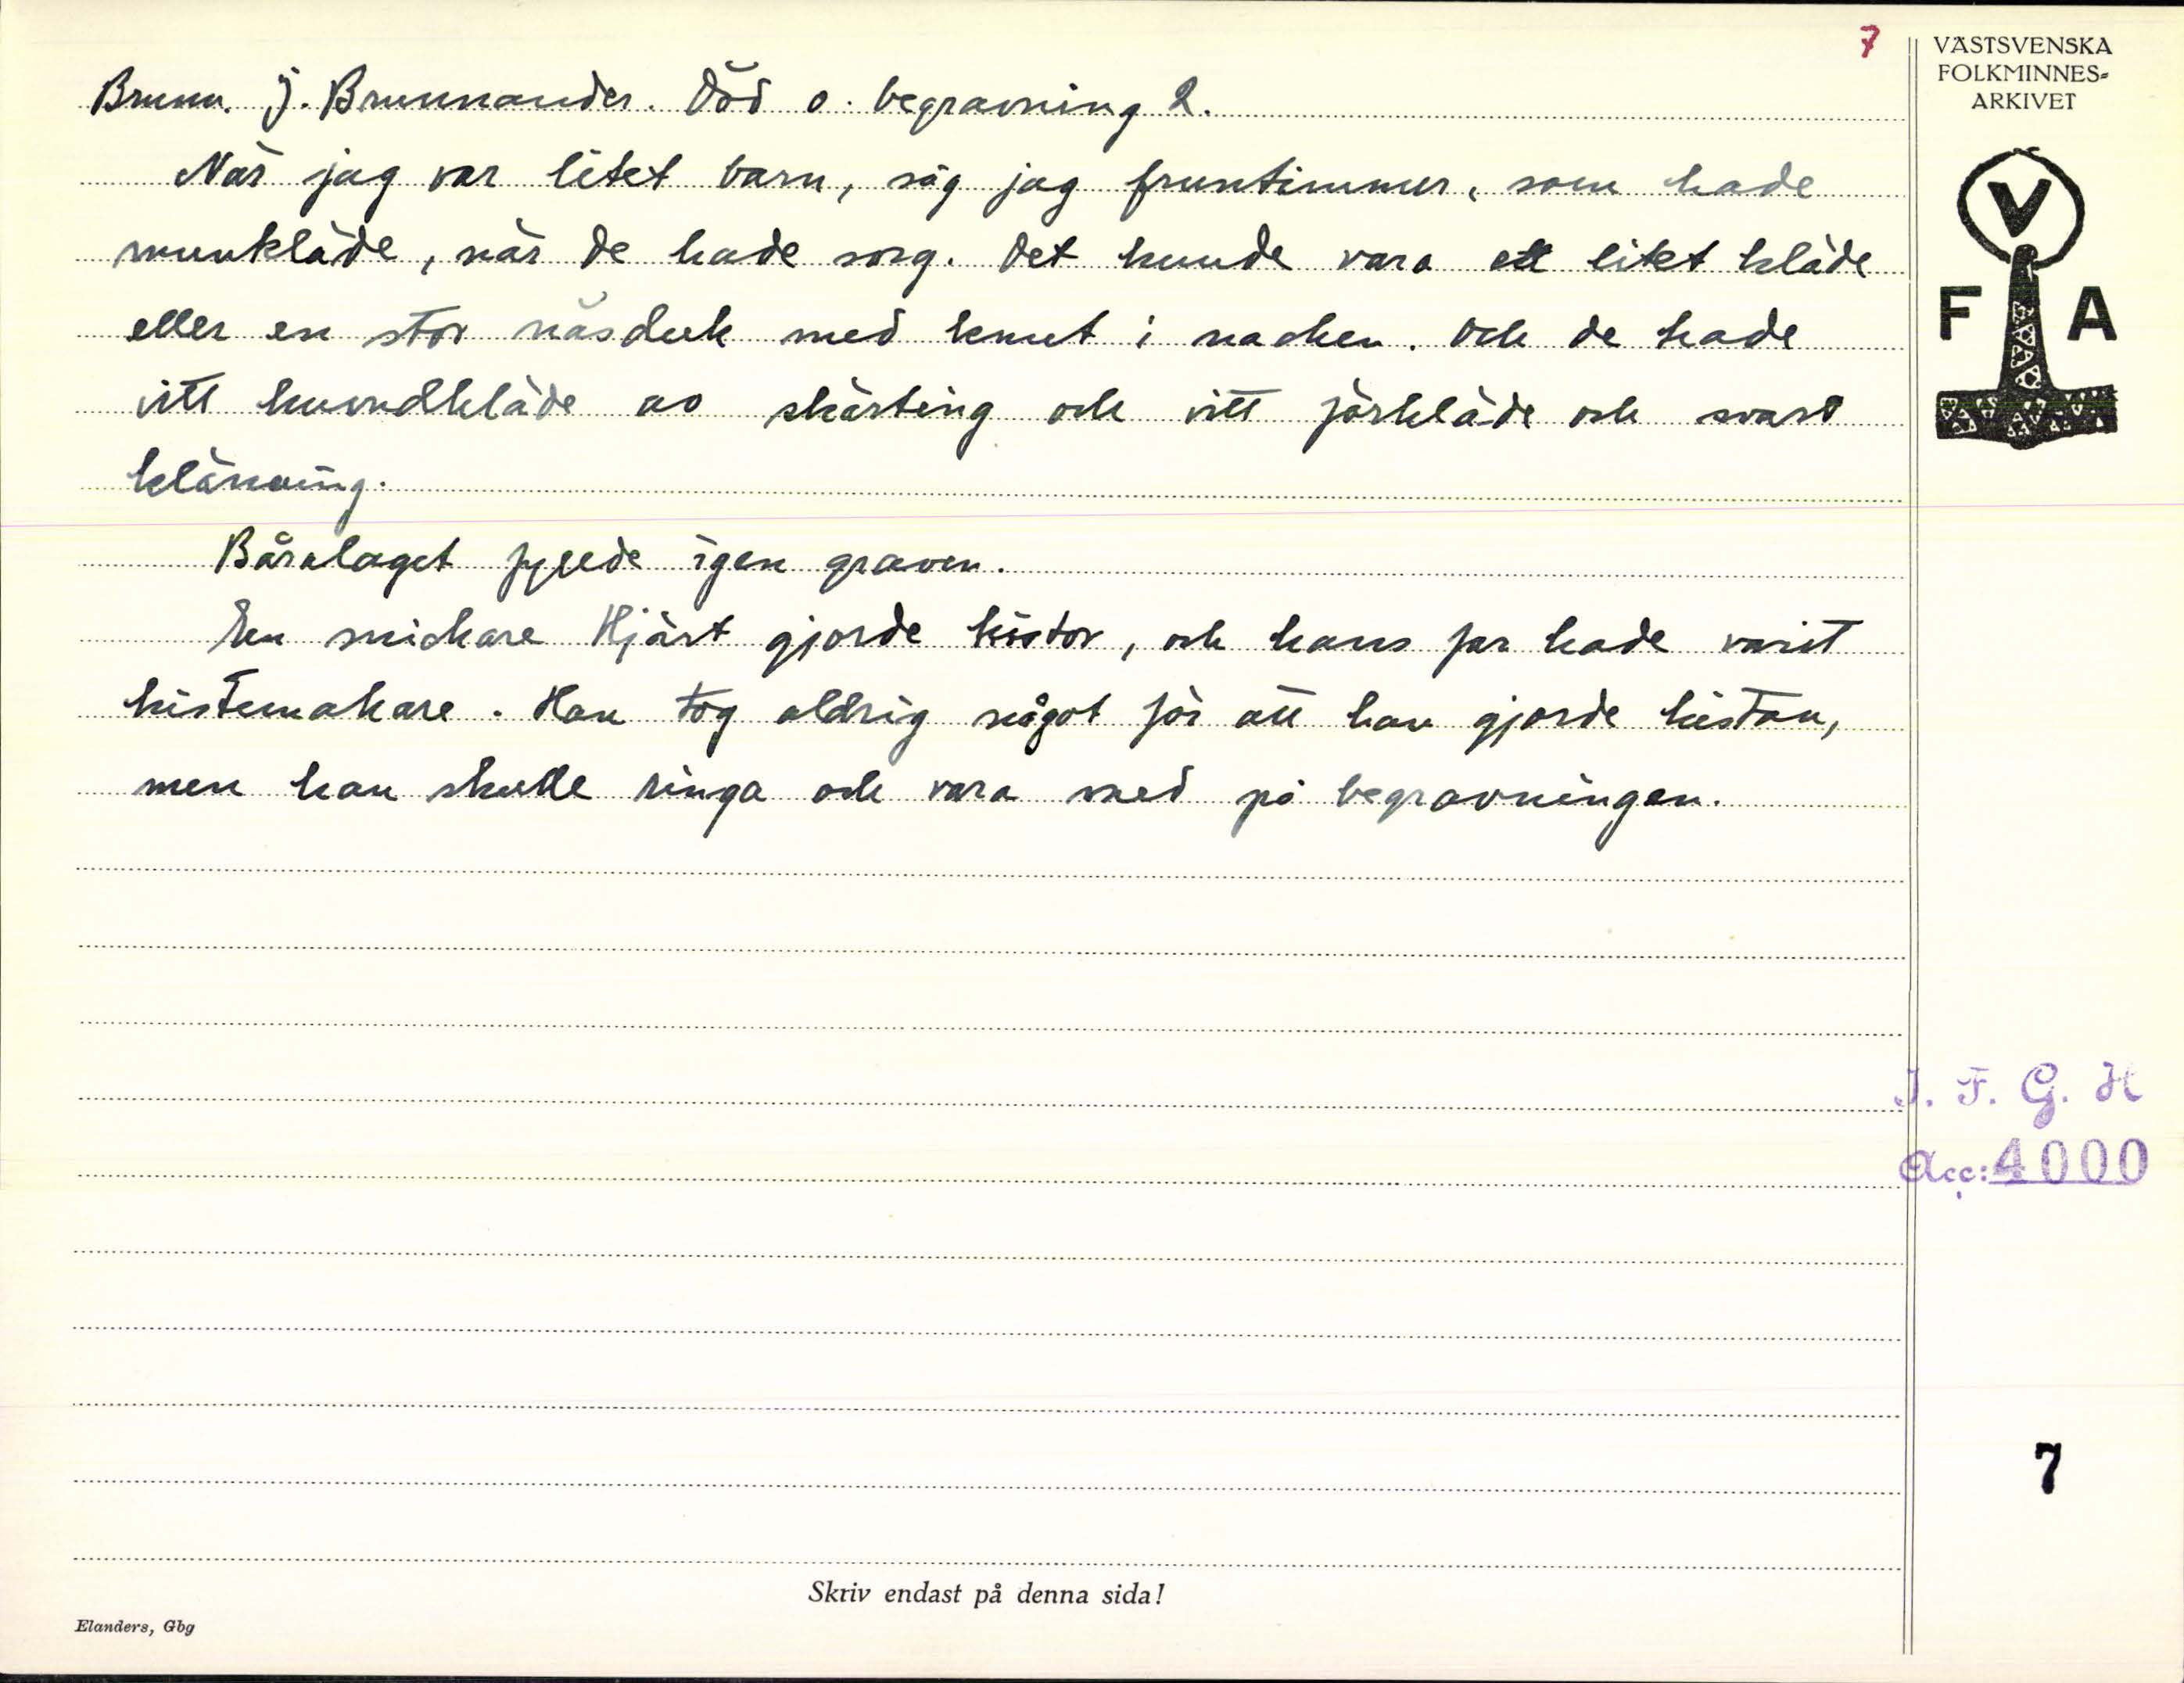 7
VÄSTSVENSKA
FOLKMINNES-
ARKIVET
V
F A
Brunn. J. Brunnander. Död o. begravning 2.
När jag var litet barn, såg jag fruntimmer, som hade
munkläde, när de hade sorg. Det kunde vara ett litet kläde
eller en stor näsduk med knut i nacken. Och de hade
vitt huvudkläde av skärting och vitt förkläde och svart
klänning.
Båralaget fyllde igen graven.
En snickare Hjärt gjorde kistor, och hans far hade varit
kistemakare. Han tog aldrig något för att han gjorde kistan,
men han skulle ringa och vara med på begravningen.
I. F. G. H
Acc: 4000
7
Skriv endast på denna sida!
Elanders, Gbg